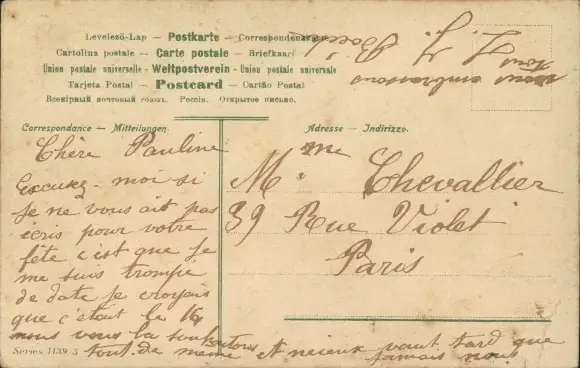 Levelező-Lap — Postkarte — Correspondenzkarte
Cartolina postale — Carte postale — Briefkaart
Union postale universelle — Weltpostverein — Union postale universale
Tarjeta Postal — Postcard — Cartão Postal
Всемірный почтовый союзъ. Россія. Открытое письмо.
Correspondance — Mitteilungen.
Adresse — Indirizzo.
Chère Pauline
Excusez-moi si
je ne vous ait pas
écris pour votre
fête c'est que je
me suis trompe
de date je croyais
que c'était le 16
nous vous la souhaitons
tout de meme et mieux vaut tard que
jamais nous
vous embrassons
tous
Mme Chevallier
39 Rue Violet
Paris
Series 1139 5